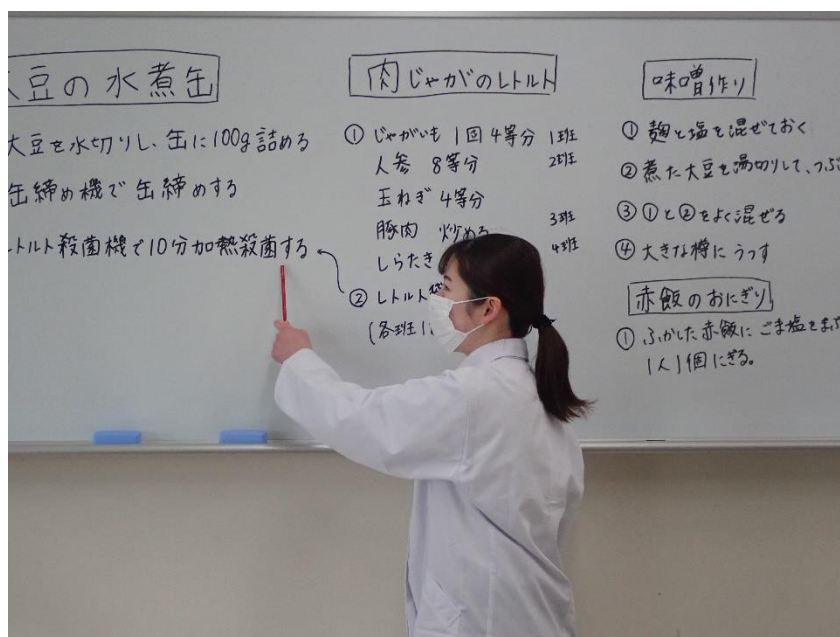 豆の水煮缶
大豆を水切りし、缶に100g詰める
缶締め機で缶締めする
レトルト殺菌機で10分加熱殺菌する
肉じゃがのレトルト
① じゃがいも 1回4等分 1班
人参 8等分 2班
玉ねぎ 4等分
豚肉 炒める 3班
しらたき 4班
② レトルト
(各班1
味噌作り
① 麹と塩を混ぜておく
② 煮た大豆を湯切りして、つぶ
③ ①と②をよく混ぜる
④ 大きな樽にうつす
赤飯のおにぎり
① ふかした赤飯にごま塩をまぶ
1人1個にぎる。